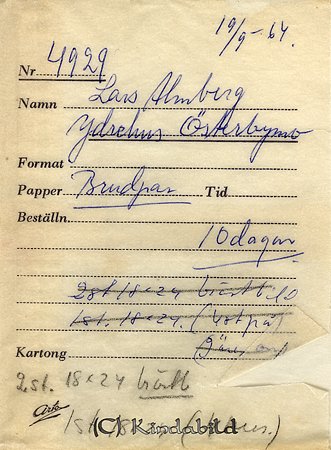 19/9-64.
Nr 4929
Namn Lars Almberg
Ydrehus Österbymo
Format
Papper Brudpar Tid
Beställn.
10 dagar
2st 18×24
1st. 18×24.
Kartong
2st. 18×24
1st. 18×24
(C) Kindabild